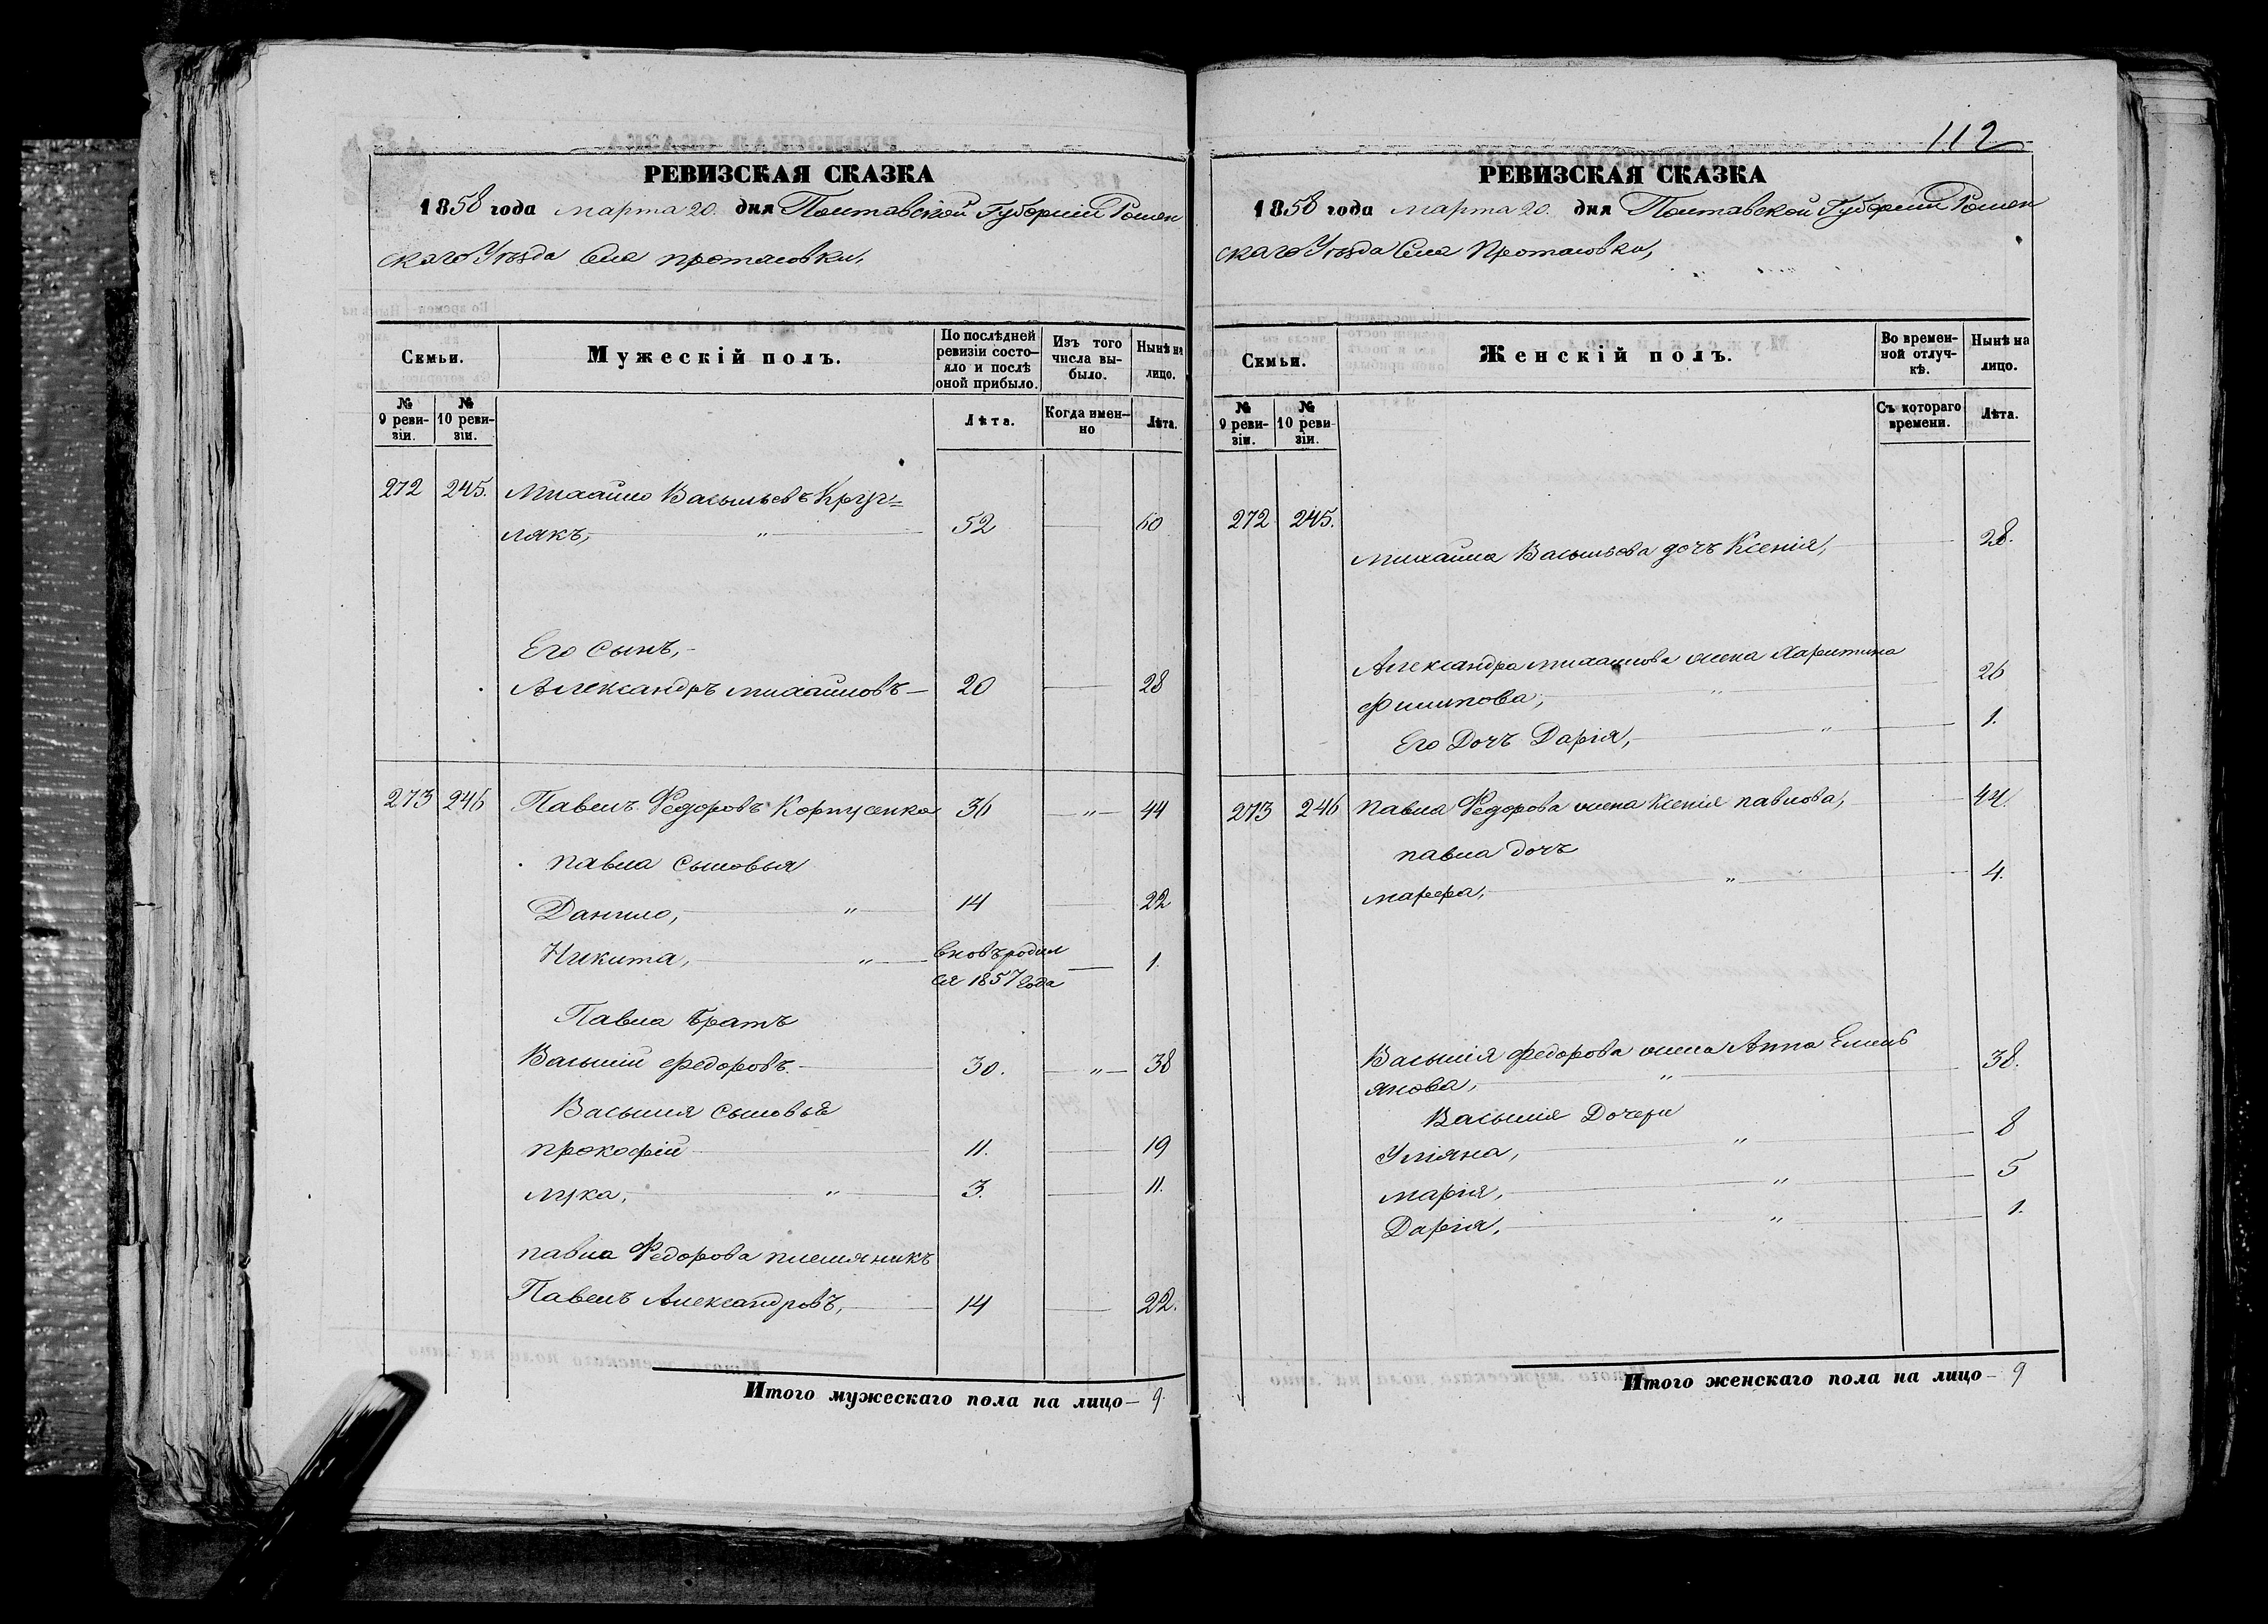 РЕВИЗСКАЯ СКАЗКА
1858 года марта 20. дня Полтавской Губерніи Ромен
скаго Уѣзда Села Протасовки,
Семьи.
Мужескій полъ.
По послѣдней
ревизіи состо-
яло и послѣ
оной прибыло.
Изъ того
числа вы-
было.
Нынѣ на
лицо.
№
9 реви-
зіи.
№
10 реви-
зіи.
Лѣта.
Когда имен-
но
Лѣта.
272 245. Михайло Васильевъ Круг=
лякъ, " 52 60
Его сынъ,
Александръ Михайловъ 20 28
273 246 Павелъ Федоровъ Корпусенко 36 " 44
Павла сыновья
Данило, " 14 22
Никита, " вновьродил
ся 1857 года 1.
Павла братъ
Василій Федоровъ. 30. " 38
Василия сыновья
Прокофій 11. 19
Лука, " 3. 11.
Павла Федорова племяникъ
Павелъ Александровъ, 14 22.
Итого мужескаго пола на лицо — 9.
112
РЕВИЗСКАЯ СКАЗКА
1858 года марта 20. дня Полтавской Губерніи Ромен
скаго Уѣзда Села Протасовки,
Семьи.
Женскій полъ.
Во времен-
ной отлуч-
кѣ.
Нынѣ на
лицо.
№
9 реви-
зіи.
№
10 реви-
зіи.
Съ котораго
времени.
Лѣта.
272 245.
Михайла Васильева дочъ Ксенія, 28.
Александра Михайлова жена Харитина
Филипова, " 26
Его Дочъ Дарія, " 1.
273 246 Павла Федорова жена Ксенія Павлова, 44.
Павла дочъ
Марфа, " 4.
Василія Федорова жена Анна Емель
янова, " 38.
Василія Дочери
Уліяна, " 8
Марія, " 5
Дарія, " 1.
Итого женскаго пола на лицо — 9